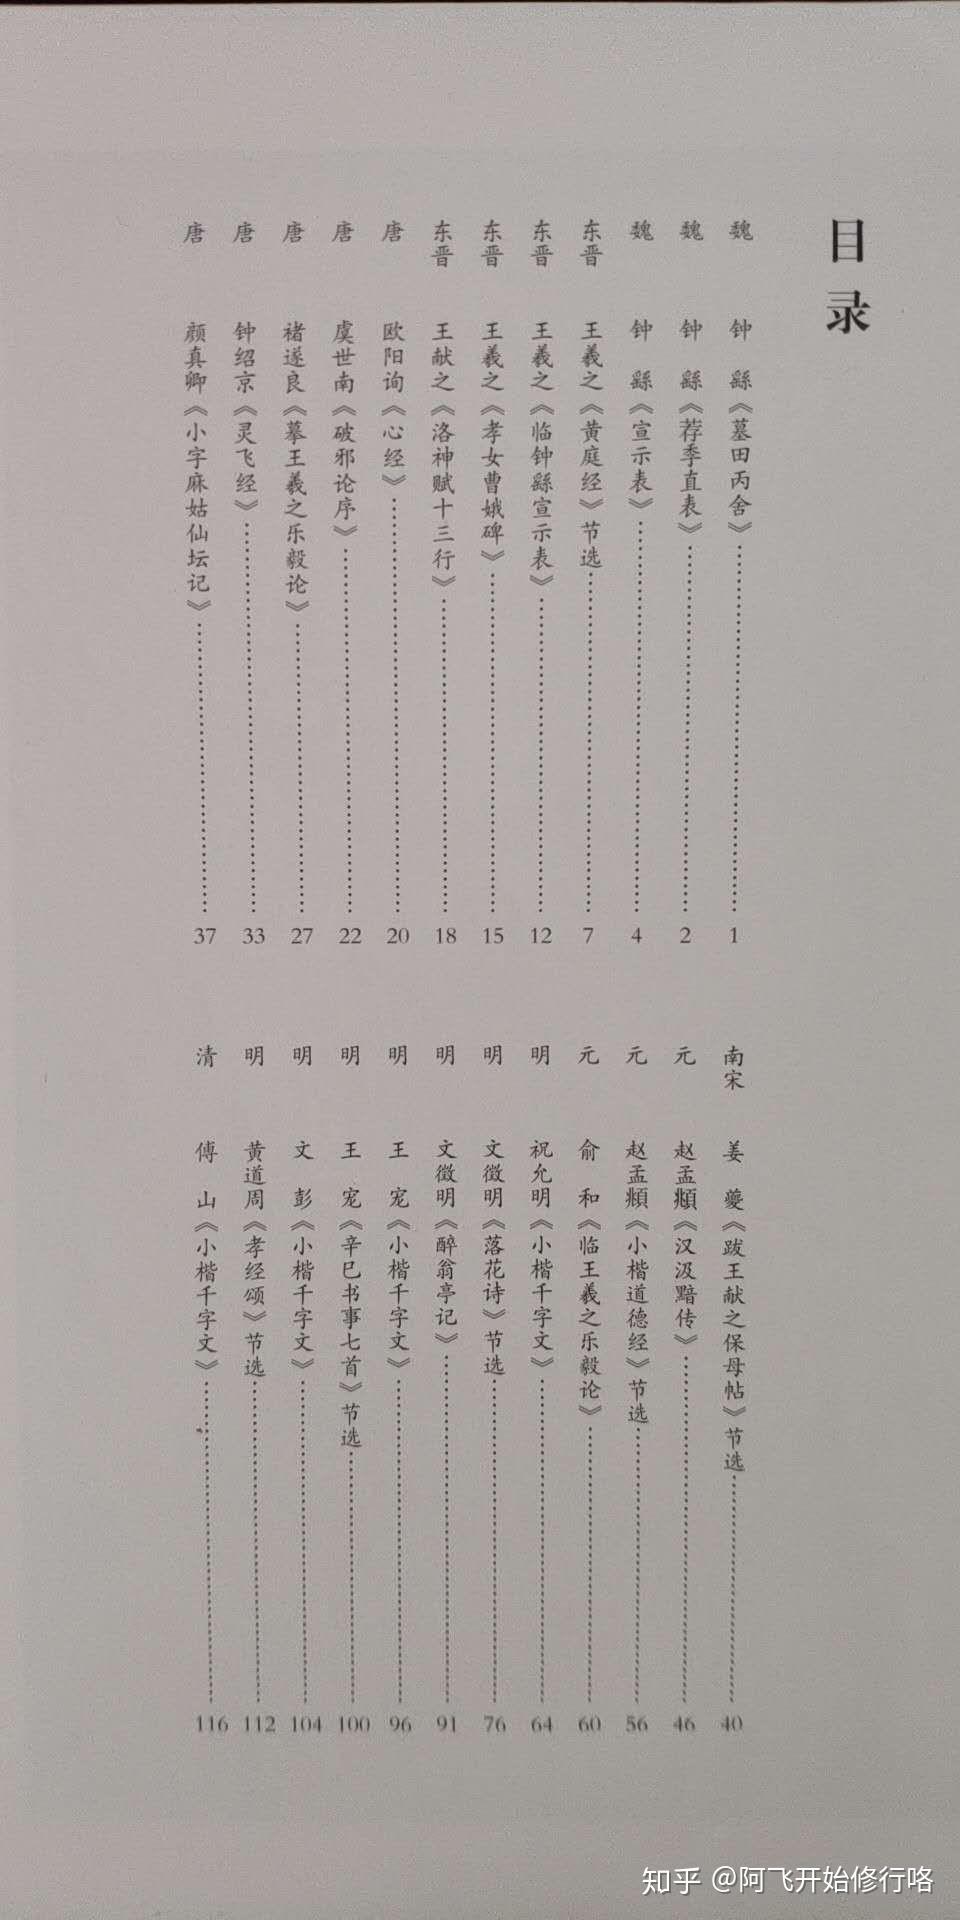 目录
魏 钟繇《墓田丙舍》 1
魏 钟繇《荐季直表》 2
魏 钟繇《宣示表》 4
东晋 王羲之《黄庭经》节选 7
东晋 王羲之《临钟繇宣示表》 12
东晋 王羲之《孝女曹娥碑》 15
东晋 王献之《洛神赋十三行》 18
唐 欧阳询《心经》 20
唐 虞世南《破邪论序》 22
唐 褚遂良《摹王羲之乐毅论》 27
唐 钟绍京《灵飞经》 33
唐 颜真卿《小字麻姑仙坛记》 37
南宋 姜夔《跋王献之保母帖》节选 40
元 赵孟頫《汉汲黯传》 46
元 赵孟頫《小楷道德经》节选 56
元 俞和《临王羲之乐毅论》 60
明 祝允明《小楷千字文》 64
明 文徵明《落花诗》节选 76
明 文徵明《醉翁亭记》 91
明 王宠《小楷千字文》 96
明 王宠《辛巳书事七首》节选 100
明 文彭《小楷千字文》 104
明 黄道周《孝经颂》节选 112
清 傅山《小楷千字文》 116
知乎 @阿飞开始修行咯